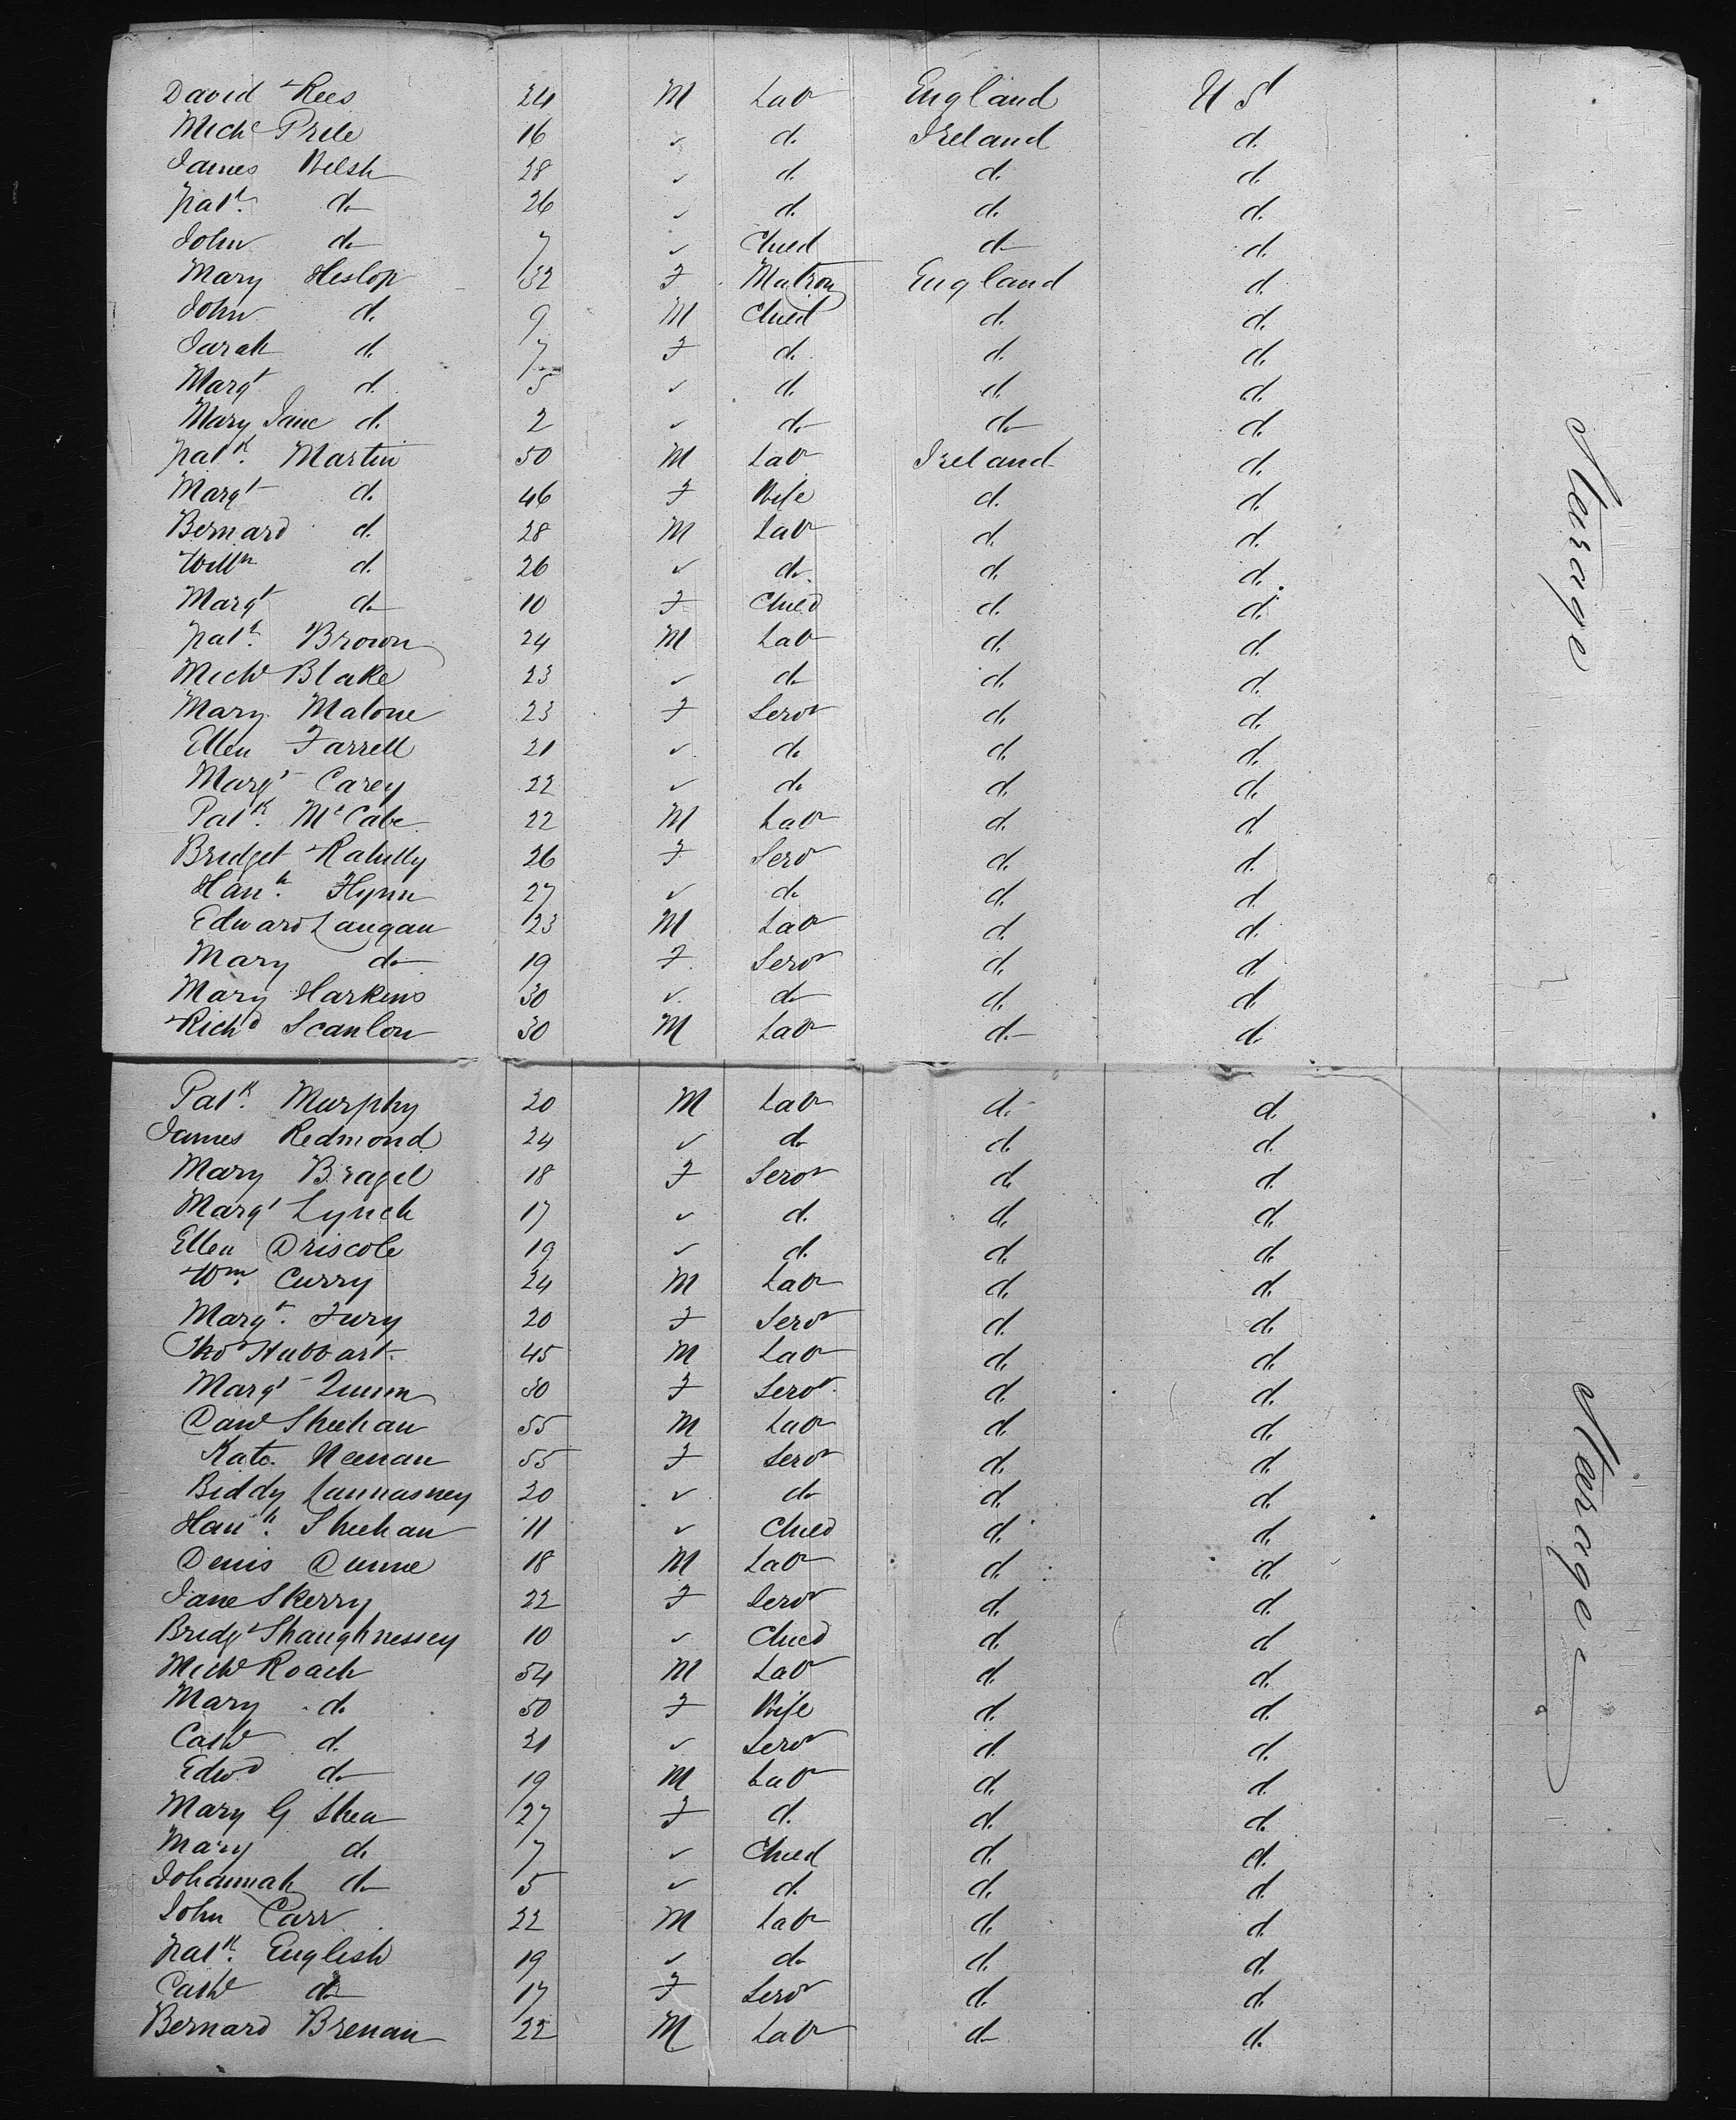 David Rees 24 M Lab England U S
Mich Prile 16 ✓ d. Ireland d.
James Welsh 28 ✓ d. d. d.
Patk. d. 26 ✓ d. d. d.
John d. 7 ✓ Child d. d.
Mary Heslop 32 F Matron England d.
John d. 9 M Child d. d.
Sarah d. 7 F d. d. d.
Margt d. 5 ✓ d. d. d.
Mary Jane d. 2 ✓ d. d. d.
Patk. Martin 50 M Lab Ireland d.
Margt d. 46 F Wife d. d.
Bernard d. 28 M Lab d. d.
Willm d. 26 ✓ d. d. d.
Margt d. 10 F Child d. d.
Patk. Brown 24 M Lab d. d.
Michl Blake 23 ✓ d. d. d.
Mary Malone 23 F Servt d. d.
Ellen Farrell 21 ✓ d. d. d.
Margt Carey 22 ✓ d. d. d.
Patk. McCabe 22 M Lab d. d.
Bridget Rahilly 26 F Serv d. d.
Hanh. Flynn 27 ✓ d. d. d.
Edward Langan 23 M Lab d. d.
Mary d. 19 F Servt d. d.
Mary Harkins 30 ✓ d. d. d.
Richd Scanlon 30 M Lab d. d.
Patk. Murphy 20 M Lab d. d.
James Redmond 24 ✓ d. d. d.
Mary Bragel 18 F Servt d. d.
Margt Lynch 17 ✓ d. d. d.
Ellen Driscole 19 ✓ d. d. d.
Wm. Curry 24 M Lab d. d.
Margt. Fury 20 F Servt d. d.
Tho Hubbart 45 M Lab d. d.
Margt Quinn 30 F Servt d. d.
Danl Sheehan 55 M Lab d. d.
Kate Neenan 55 F Servt d. d.
Biddy 20 ✓ d. d. d.
Hanh. Sheehan 11 ✓ Child d. d.
Denis Dunne 18 M Lab d. d.
Jane Skerry 22 F Servt d. d.
Bridgt Shaughnessey 10 ✓ Child d. d.
Michl Roach 54 M Lab d. d.
Mary d. 50 F Wife d. d.
Cath d. 21 ✓ Servt d. d.
Edwd d. 19 M Lab d. d.
Mary G Shea 27 F d. d. d.
Mary d. 7 ✓ Child d. d.
Johannah d. 5 ✓ d. d. d.
John Carr 22 M Lab d. d.
Patk. English 19 ✓ d. d. d.
Cath d. 17 F Servt d. d.
Bernard Brenan 22 M Lab d. d.
Steerage
Steerage